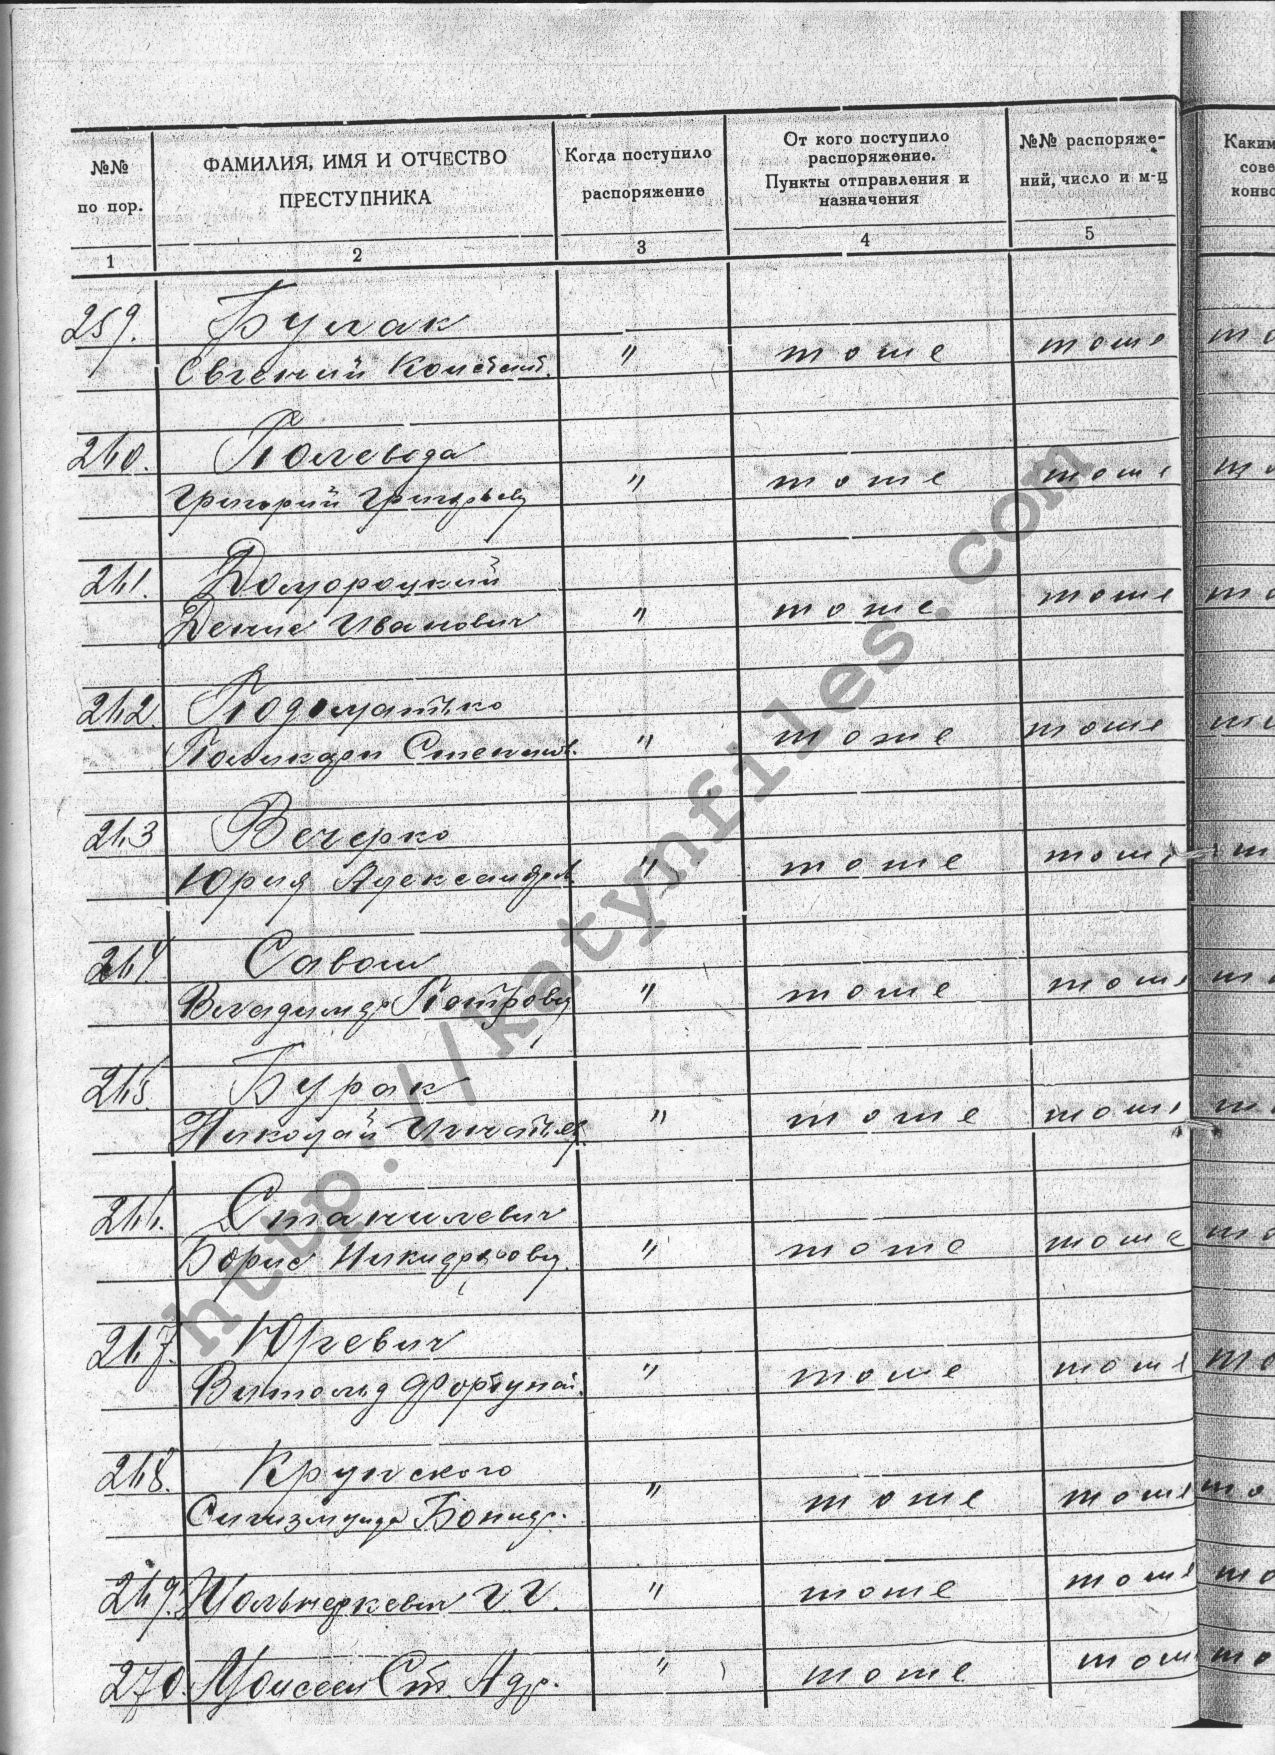 №№
по пор.
ФАМИЛИЯ, ИМЯ И ОТЧЕСТВО
ПРЕСТУПНИКА
Когда поступило
распоряжение
От кого поступило
распоряжение.
Пункты отправления и
назначения
№№ распоряже-
ний, число и м-ц
Каким
сове
конво
1 2 3 4 5
259. Булак
Евгений Констант. " тоже тоже то
260. Полевода
Григорий Григорьев " тоже тоже то
261. Домороцкий
Денис Иванович " тоже тоже то
262 Подоматько
Поликарп Степанов. " тоже тоже то
263 Вечерко
Юрия Александров " тоже тоже т
264. Савош
Владимир Петрович " тоже тоже то
265. Бурак
Николай Игнатьев. " тоже тоже то
266. Станилевич
Борис " тоже тоже то
267. Юревич
Витольд Фортунат. " тоже тоже то
268. Крупского
Сигизмунда " тоже тоже то
269. Г. Г. " тоже тоже то
270. Моисеев Ст. Адр. " тоже тоже то
http://katynfiles.com